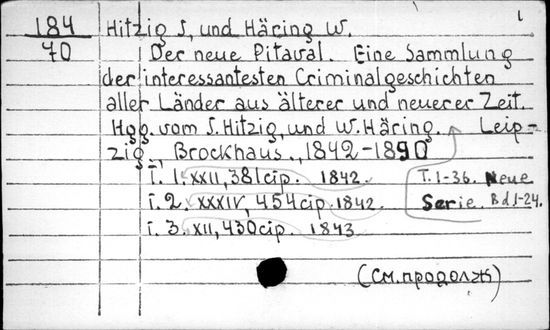 184 Hitzig J, und Häring W.
70 Der neue Pitaval. Eine Sammlung
der interessantesten Criminalgeschichten
aller Länder aus älterer und neuerer Zeit.
Hgg. vom J. Hitzig, und W. Häring. Leip-
zig, Brockhaus., 1842-1890
T. 1. XXII, 381 cip. 1842.
T. 1-36. Neue
T. 2. XXXIV, 454 cip. 1842.
Serie. Bd 1-24.
T. 3. XII, 430 cip. 1843
(См. продолж)